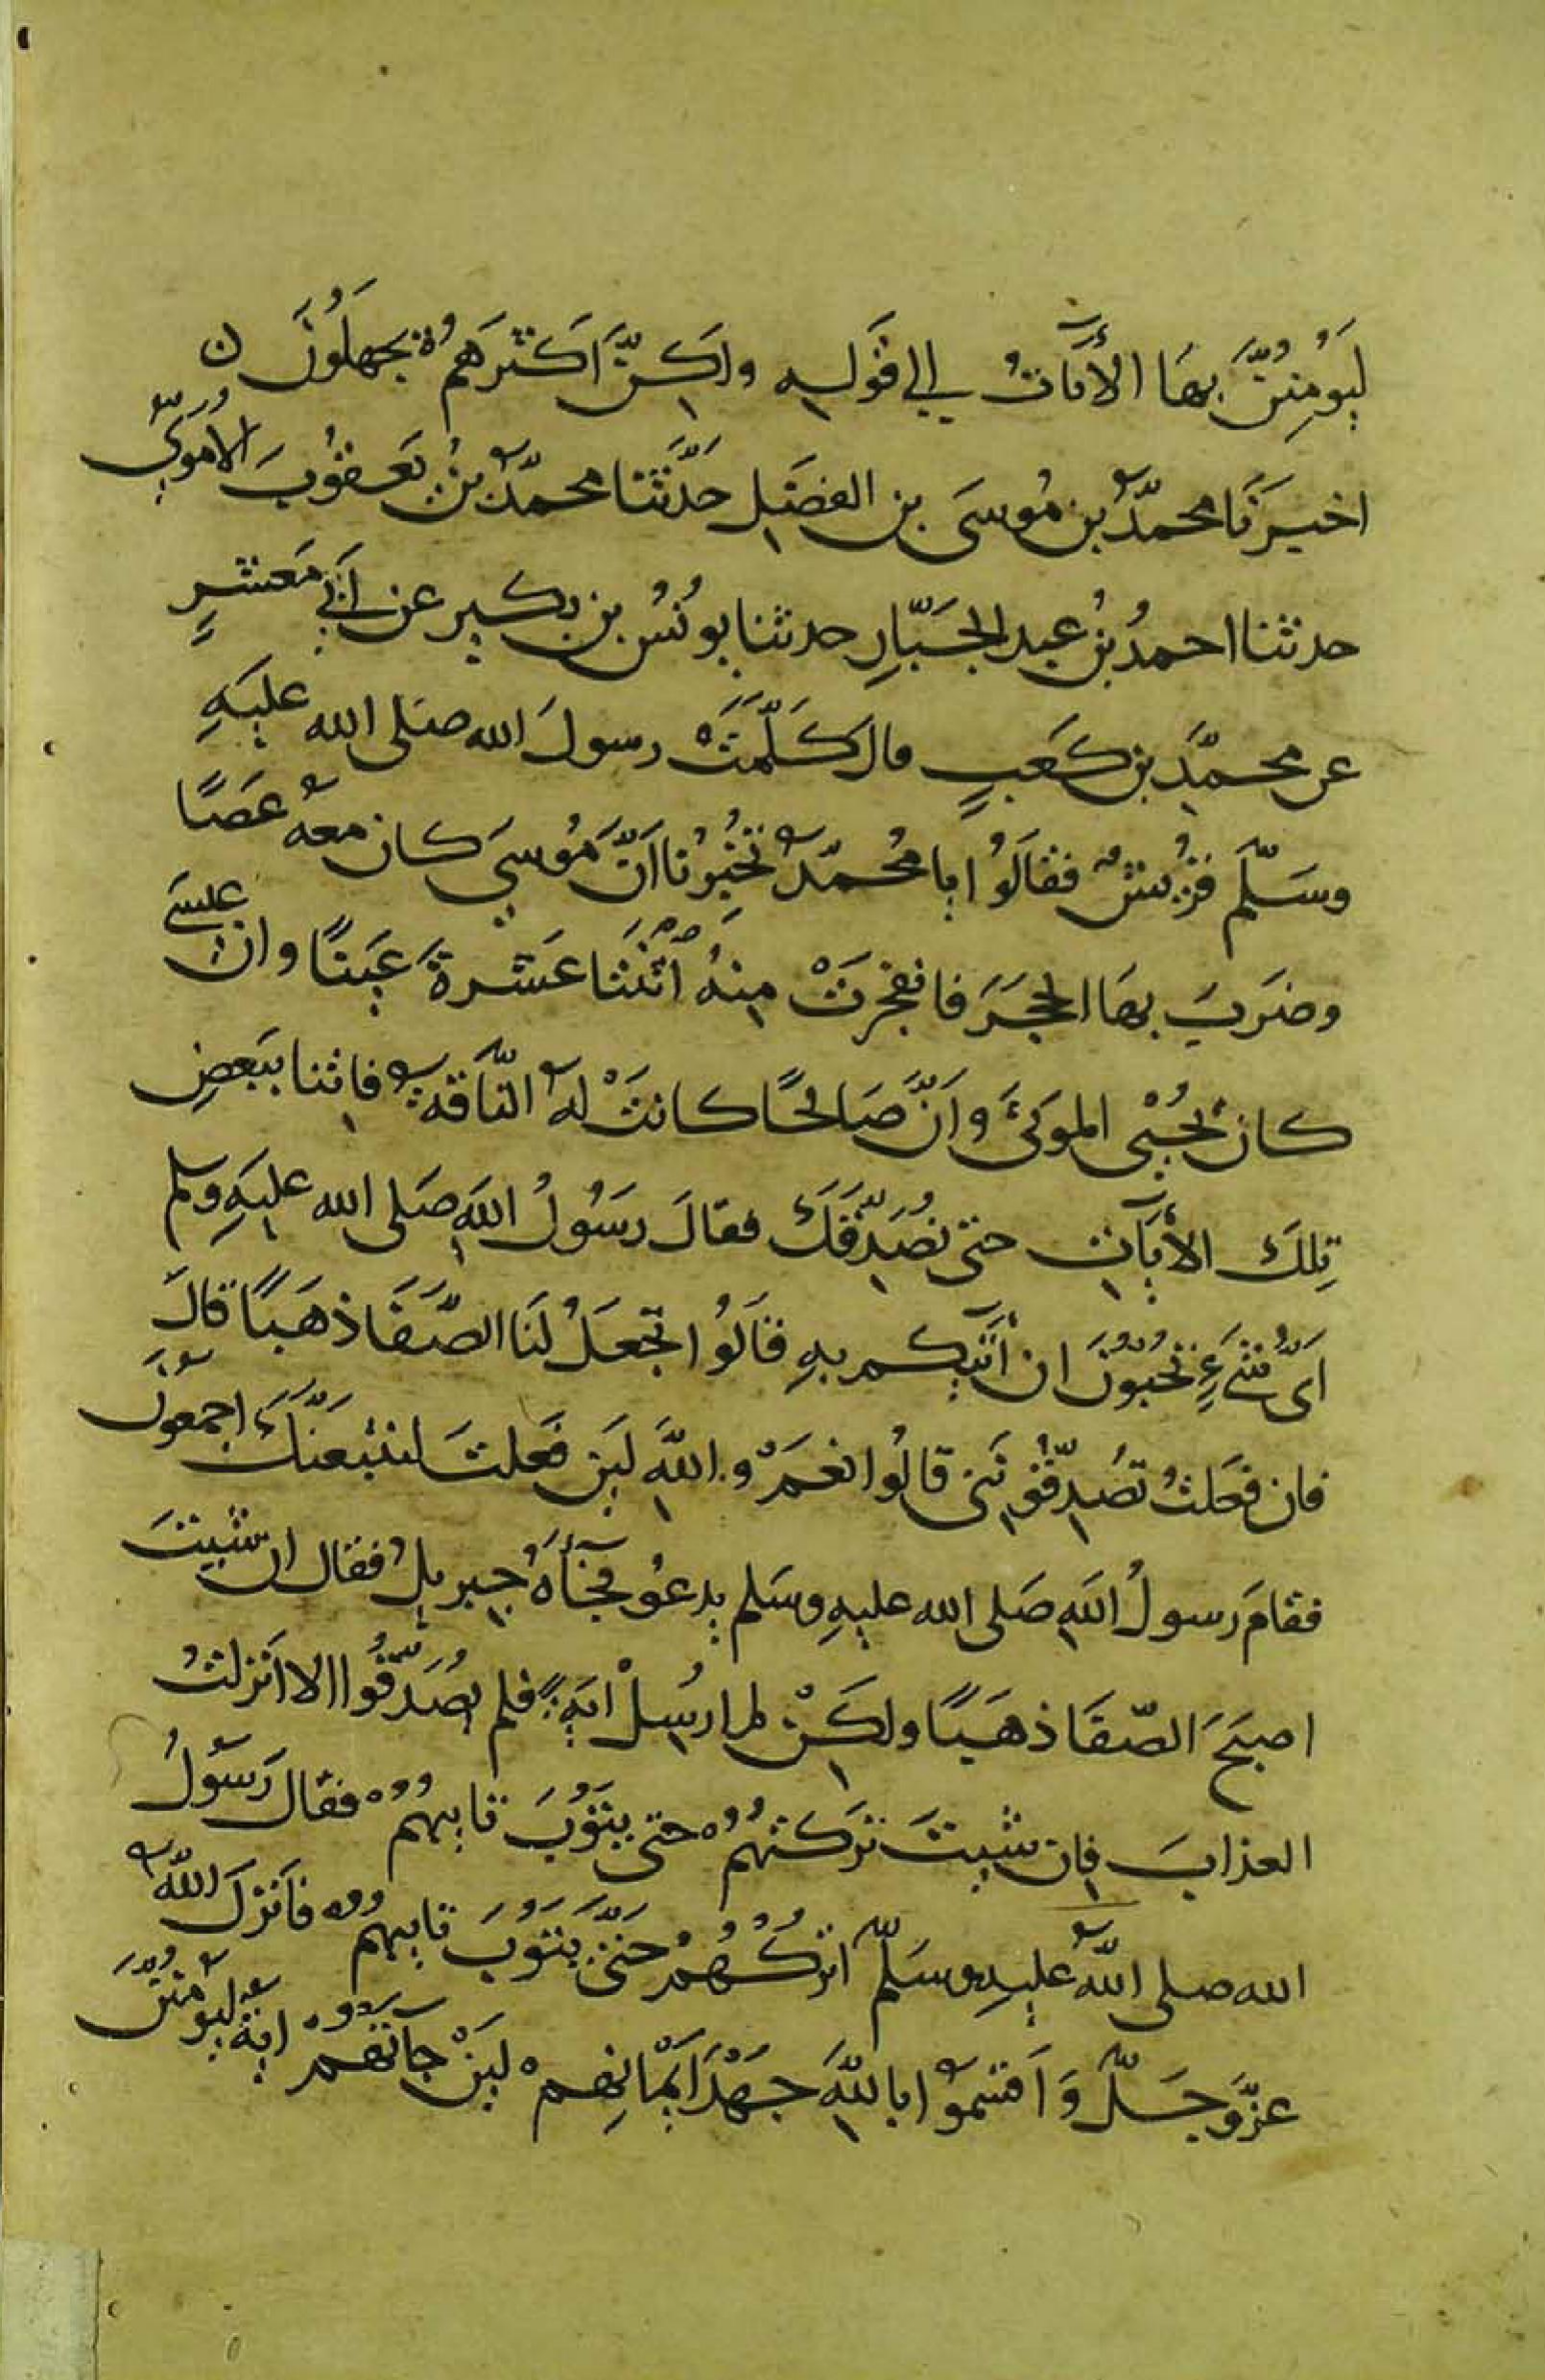 لَيُومِنُنَّ بِهَا الأَيَاتُ إلي قَولِهِ ولَكِنَّ اَكثَرَهُم يَجهَلُونَ ن
اخبَرَنَا محمّدُ بن مُوسَى بن الفضَلِ حَدَّثَنا محمّدُ بنُ يَعقُوبَ الاُمَوِيُّ
حدثنا احمدُ بنُ عبدِ الجَبّارِ حدثنا يونُسُ بن بكيرٍ عن اَبي مَعشَرٍ
عن محمّدِ بن كَعبٍ قال كَلَّمَتْ رسولَ الله صَلى الله عليَهِ
وسَلّم قُرَيشٌ فقالَوُا يا مُحمّدُ تُخبِرُنا اَنَّ مُوسيَ كان معهُ عَصًا
وضَرَبَ بهَا الحجَرَ فانفجرَتْ مِنهُ اثنَتا عَشرةَ عَينًا وان عيسَى
كان يُحْيِى الموتَى وَاَنَّ صَالحًا كانتْ لهُ النّاقَةُ فاتنا ببَعضِ
تِلكَ الأَيَاتِ حتى نُصَدِّقَكَ فقالَ رسَوُلُ اللهِ صَلى الله عليَهِ وسلم
اَىُّ شَىءٍ تُحبُّونَ ان اَتِيكم بهِ قالَوُا تجعَلُ لنَا الصّفَا ذهَبًا قالَ
فان فعَلتُ تُصَدِّقُونَنى قالُوا نعَمْ واللهِ لَئن فعَلتَ لنتبَعنَّكَ اجمعُونَ
فقامَ رسولُ اللهِ صَلى الله عليهِ وسَلم يدعُو فجَآءَهُ جبريلُ فقال ان شيتَ
اصبَحَ الصّفَا ذهَبًا ولكَنْ لم ارسِلْ ايةً فلم يُصَدّقُوا الا اَنزلتُ
العذابَ فان شيتَ تَركتهُمُ حتى يتَوُبَ تايبهُمُ فقال رَسَولُ
الله صلى اللهُ عليهِ وسَلّم اترُكُهُمْ حَتّى يَتوُبَ تايبهُم فاَنزلَ اللهُ
عزّ وَجَلّ وَاَقسَمُوا باللهِ جَهْدَ اَيْمَانِهِم لَينْ جَآتهُمْ ايةٌ ليُومنُنَّ